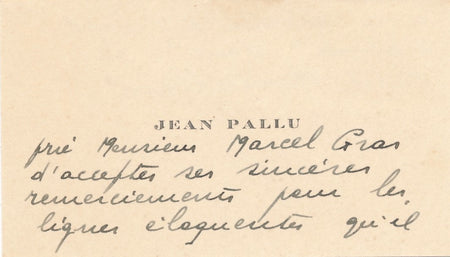 JEAN PALLU
prie Monsieur Marcel Gras
d'accepter ses sincères
remerciements pour les
lignes éloquentes qu'il